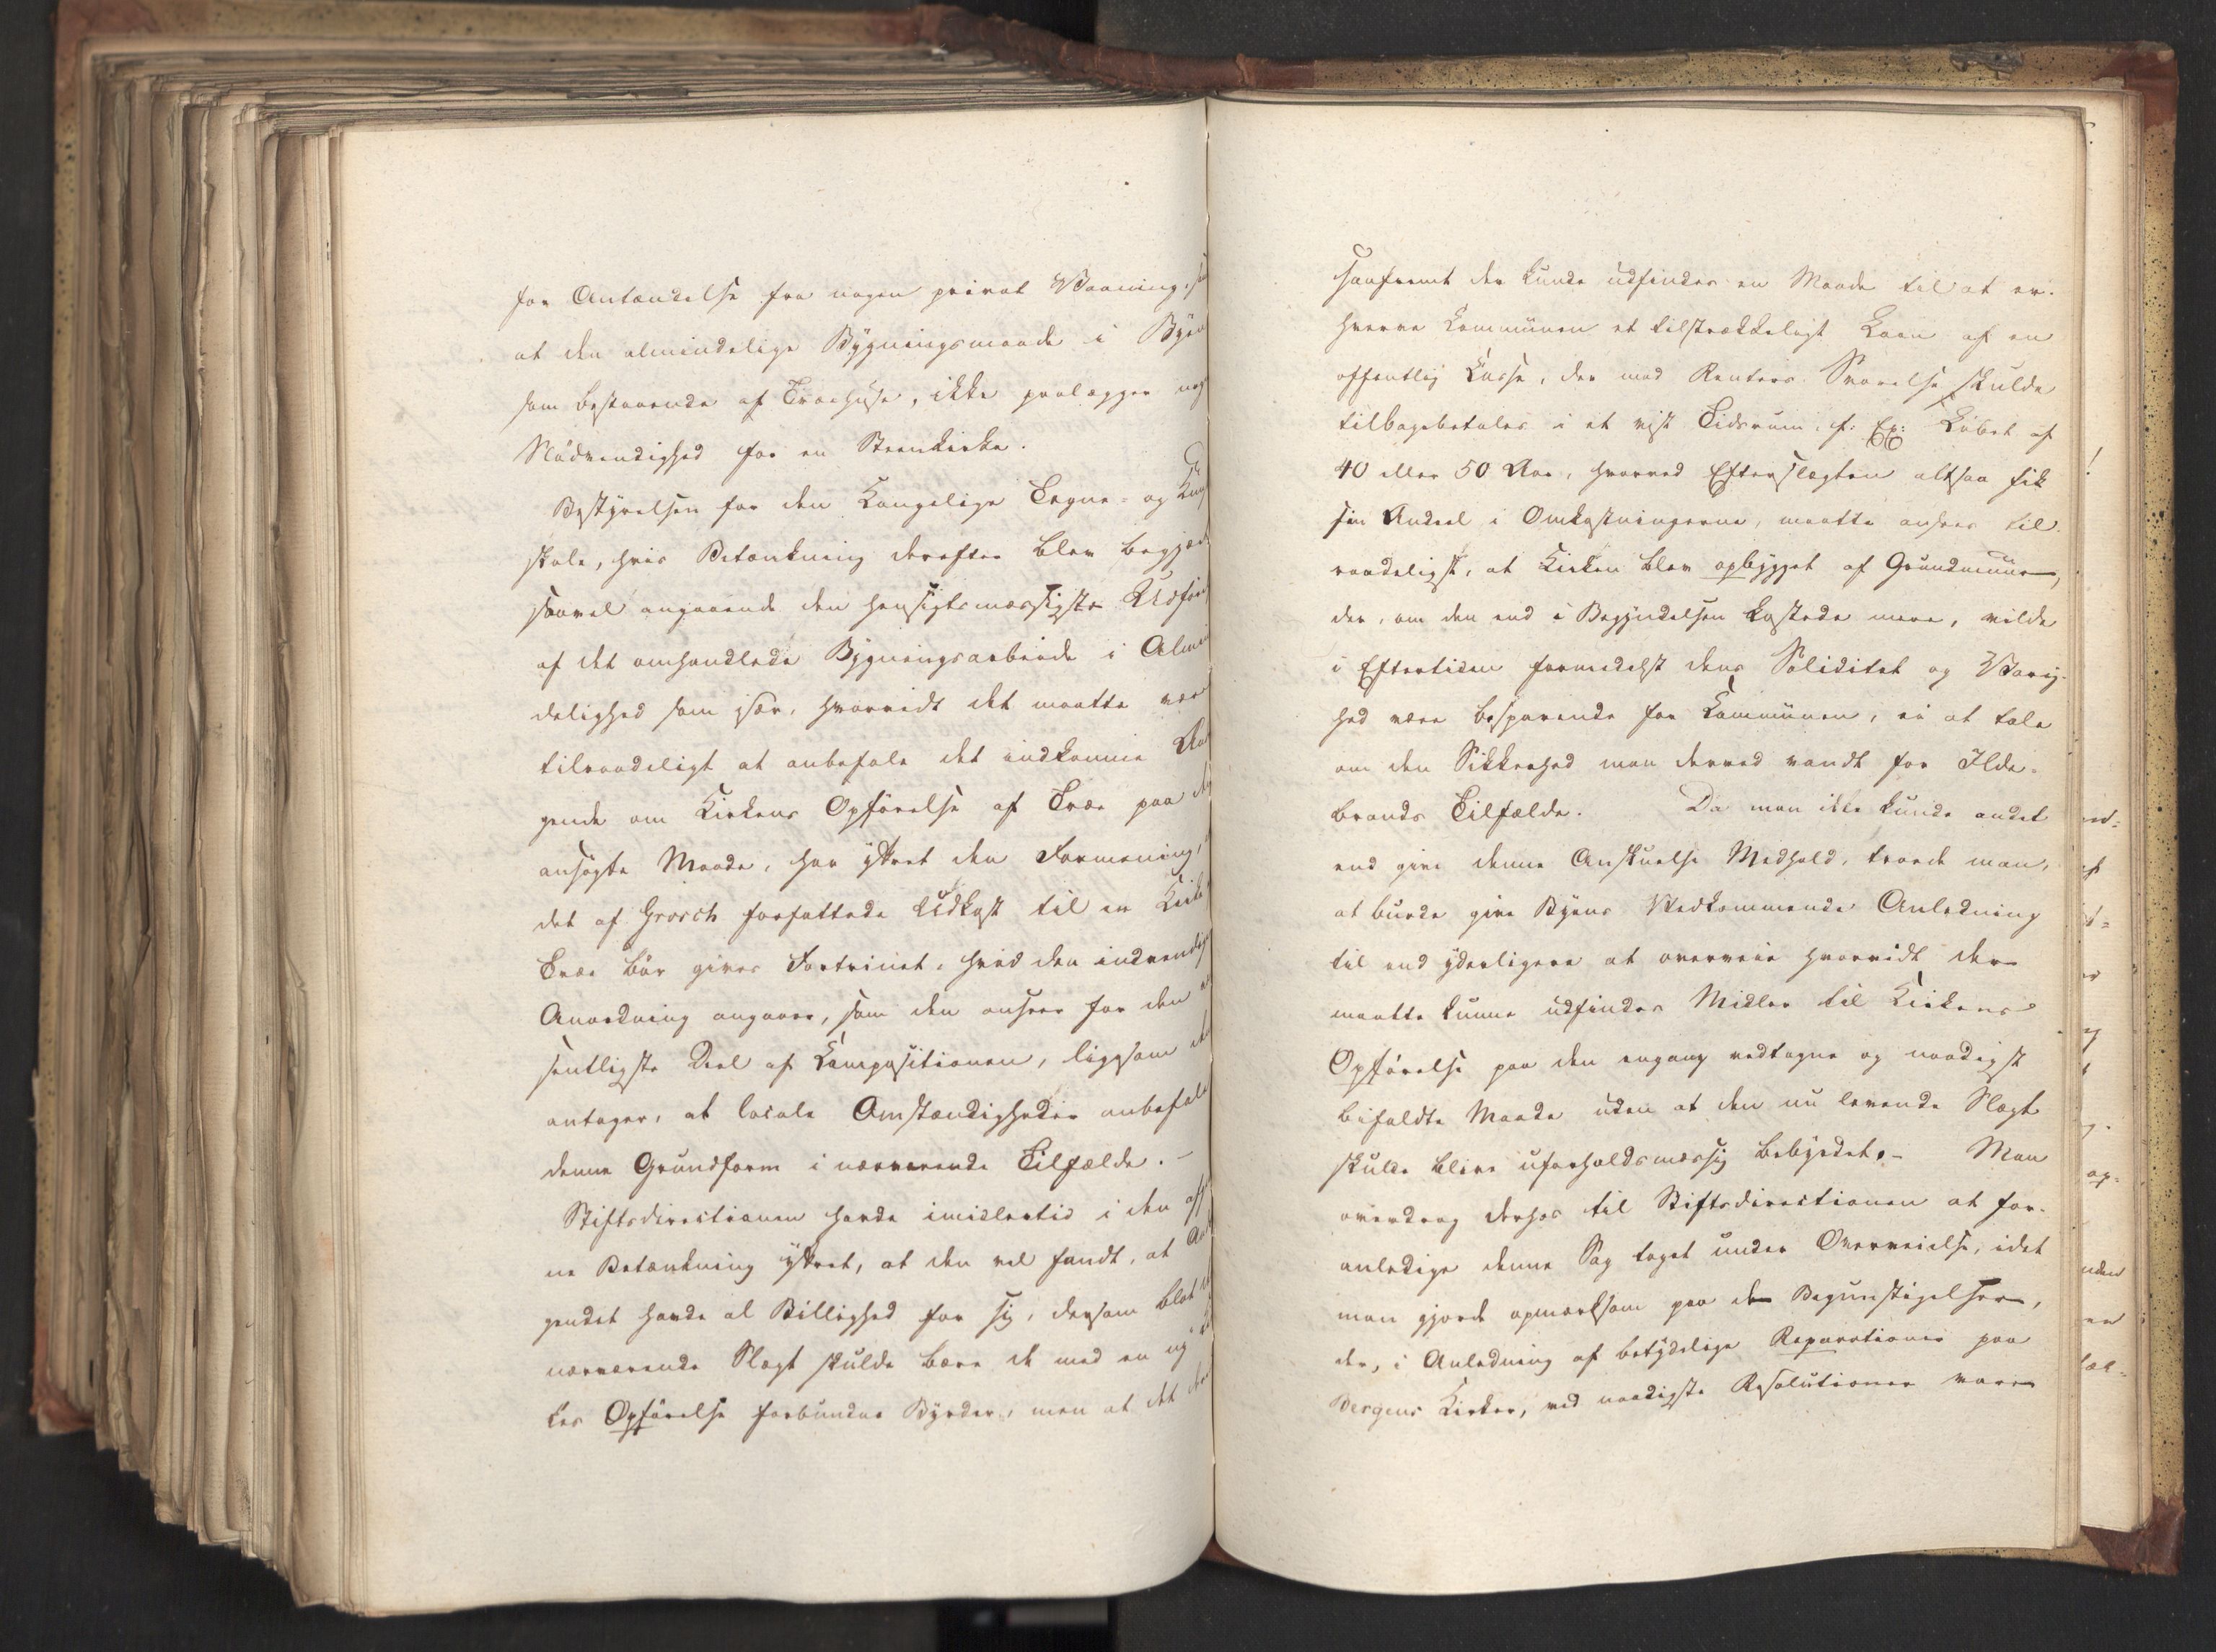 for Antændelse fra nogen privat Vaaning,
at den almindelige Bygningsmaade i Byen
som bestaaende af Træhuse, ikke paalægger
Nödvendighed for en Steenkirke.
Bestyrelsen for den Kongelige Tegne- og
skole, hvis Betænkning derefter blev
saavel angaaende den hensigtsmæssigste
af det omhandlede Bygningsarbeide i
delighed som især, hvorvidt det maatte
tilraadeligt at anbefale det indkomne
gende om Kirkens Opförelse af Træe paa
ansögte Maade, har yttret den Formening,
det af Grosch forfattede Udkast til en
Træe bör gives Fortrinet, hvad den indvendige
Anordning angaaer, som den ansees for den
sentligste Deel af Compositionen, ligesom
antager, at locale Omstændigheder anbefale
denne Grundform i nærværende Tilfælde. -
Stiftsdirectionen havde imidlertid i den
ne Betænkning yttret, at den vel fandt, at
gendet havde al Billighed for sig, dersom blot
nærværende Slægt skulde bære de med en ny
kes Opförelse forbundne Byrder, men at det
saafremt der kunde udfindes en Maade til at er-
hverve Communen et tilstrækkeligt Laan af en
offentlig Casse, der med Renters Svarelse skulde
tilbagebetales i et vist Tidsrum, f: Ex: Löbet af
40 eller 50 Aar, hvorved Efterslægten altsaa fik
sin Andeel i Omkostningerne, maatte ansees til-
raadeligst, at Kirken blev opbygget af Grundmuur,
der, om den end i Begyndelsen kostede mere, vilde
i Eftertiden formedelst dens Soliditet og Varig-
hed være besparende for Communen, ei at tale
om den Sikkerhed man derved vandt for Ilde-
brands Tilfælde. Da man ikke kunde andet
end give denne Anskuelse Medhold, troede man,
at burde give Byens Vedkommende Anledning
til end yderligere at overveie hvorvidt der
maatte kunne udfindes Midler til Kirkens
Opförelse paa den engang vedtagne og naadigst
bifaldte Maade uden at den nu levende Slægt
skulde blive uforholdsmæssig bebyrdet. - Man
overdrog derhos til Stiftsdirectionen at for-
anledige denne Sag taget under Overveielse, idet
man gjorde opmærksom paa de Begunstigelser,
der, i Anledning af betydelige Reparationer paa
Bergens Kirker, ved naadigste Resolutioner vare